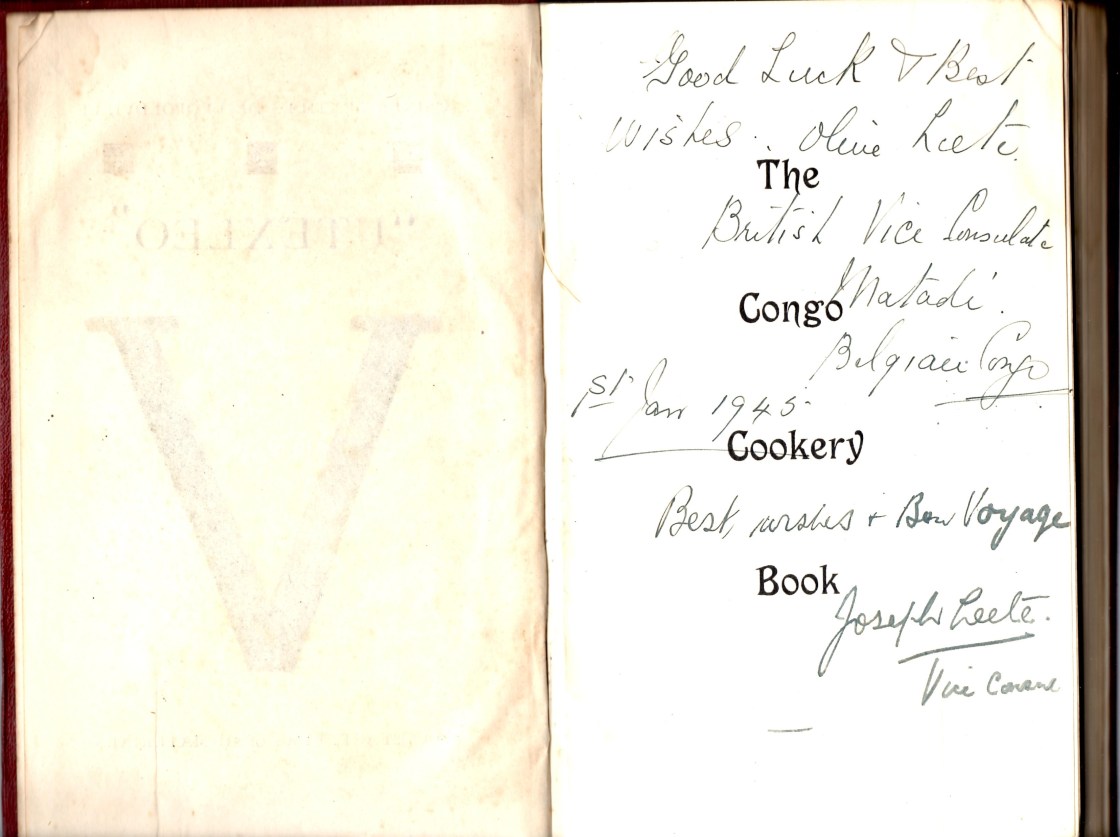 "UTEXLEO"
V
Good Luck & Best
Wishes. Olive Leete.
The
British Vice Consulate
Congo Matadi.
Belgian Congo
1st Jan 1945
Cookery
Best wishes + Bon Voyage
Book
Joseph Leete.
Vice Consul